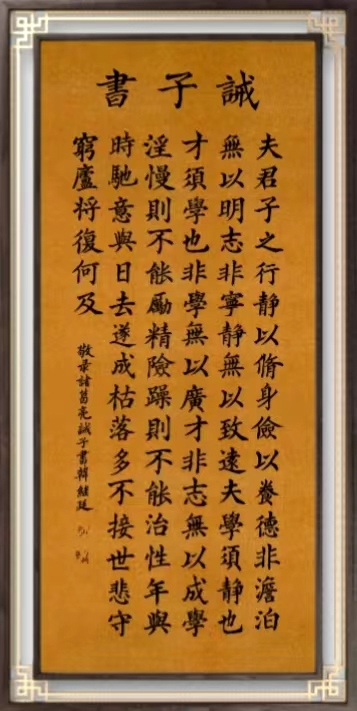 誡子書
夫君子之行静以脩身儉以養德非澹泊
無以明志非寧静無以致遠夫學須静也
才須學也非學無以廣才非志無以成學
淫慢則不能勵精險躁則不能治性年與
時馳意與日去遂成枯落多不接世悲守
窮廬将復何及
敬录諸葛亮誡子書韓継廷